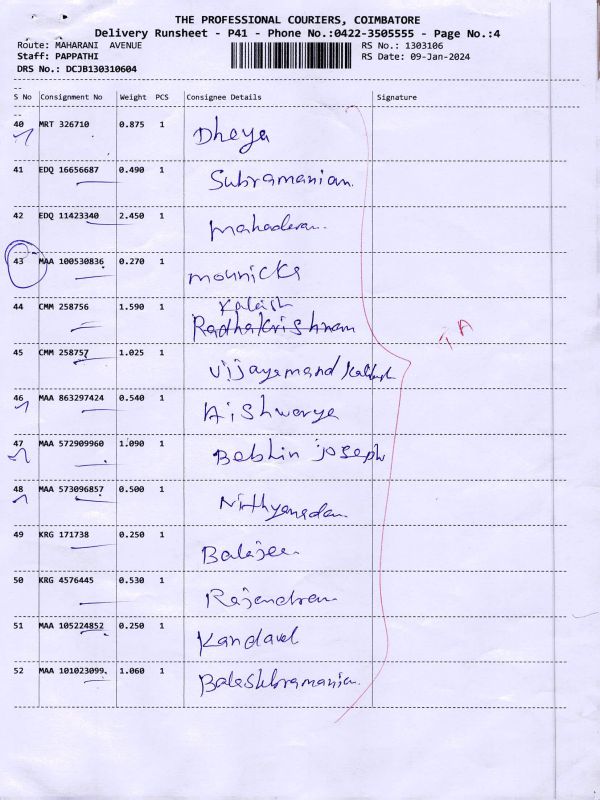 THE PROFESSIONAL COURIERS, COIMBATORE
Delivery Runsheet - P41 - Phone No.:0422-3505555 - Page No.:4
Route: MAHARANI AVENUE RS No.: 1303106
Staff: PAPPATHI RS Date: 09-Jan-2024
DRS No.: DCJB130310604
--
S No Consignment No Weight PCS Consignee Details Signature
--
40 MRT 326710 0.875 1 Dheya
41 EDQ 16656687 0.490 1 Subramanian.
42 EDQ 11423340 2.450 1 Mahadevan.
43 MAA 100530836 0.270 1 mounicka
Kalaish
44 CMM 258756 1.590 1 Radhakrishnan
45 CMM 258757 1.025 1 Vijayamand
46 MAA 863297424 0.540 1 Aishwarya
47 MAA 572909960 1.090 1 Beblin joseph
48 MAA 573096857 0.500 1 Nithyanadan.
49 KRG 171738 0.250 1 Balajee
50 KRG 4576445 0.530 1 Rajendran
51 MAA 105224852 0.250 1 Kandavel
52 MAA 101023099. 1.060 1 Balashbramanian.